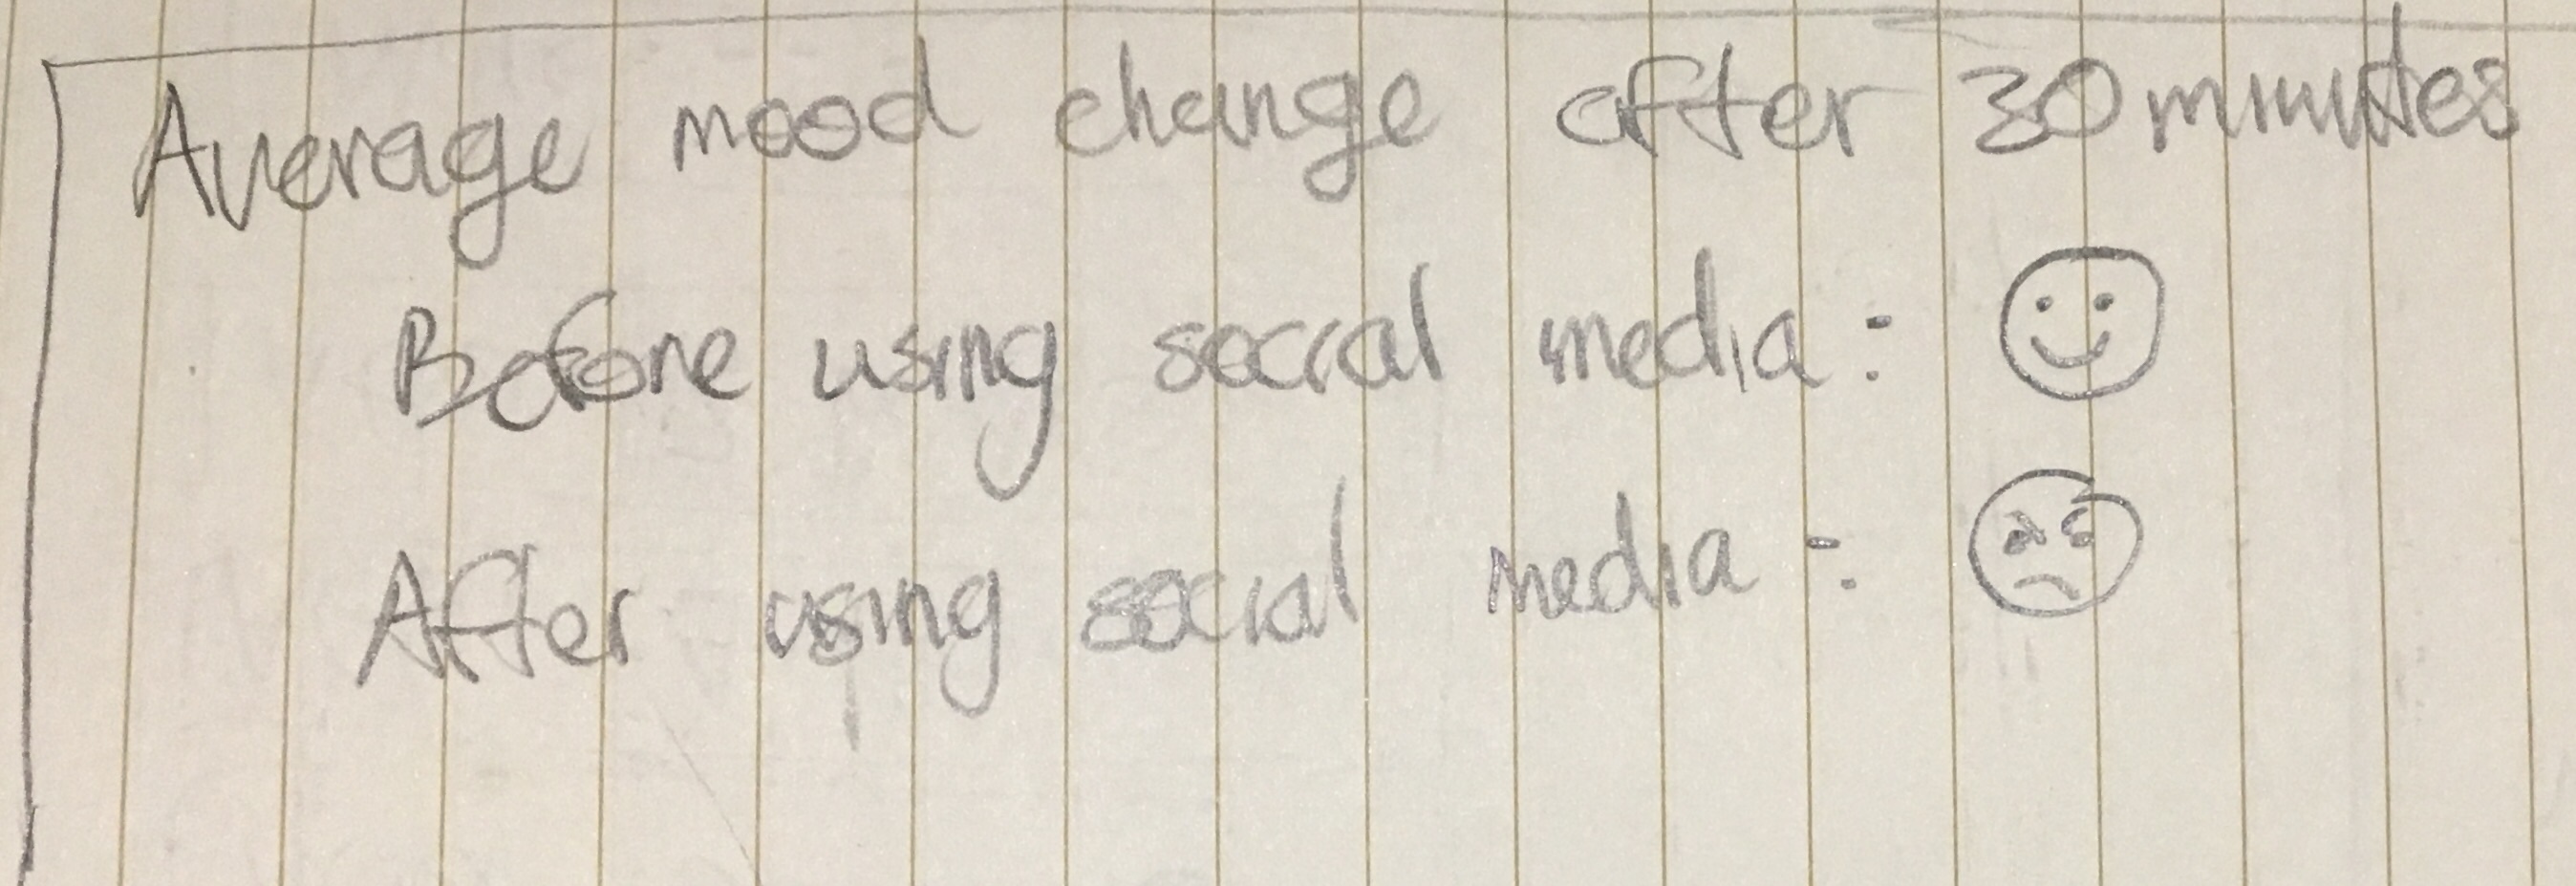 Average mood change after 30 minutes
Before using social media:
After using social media: